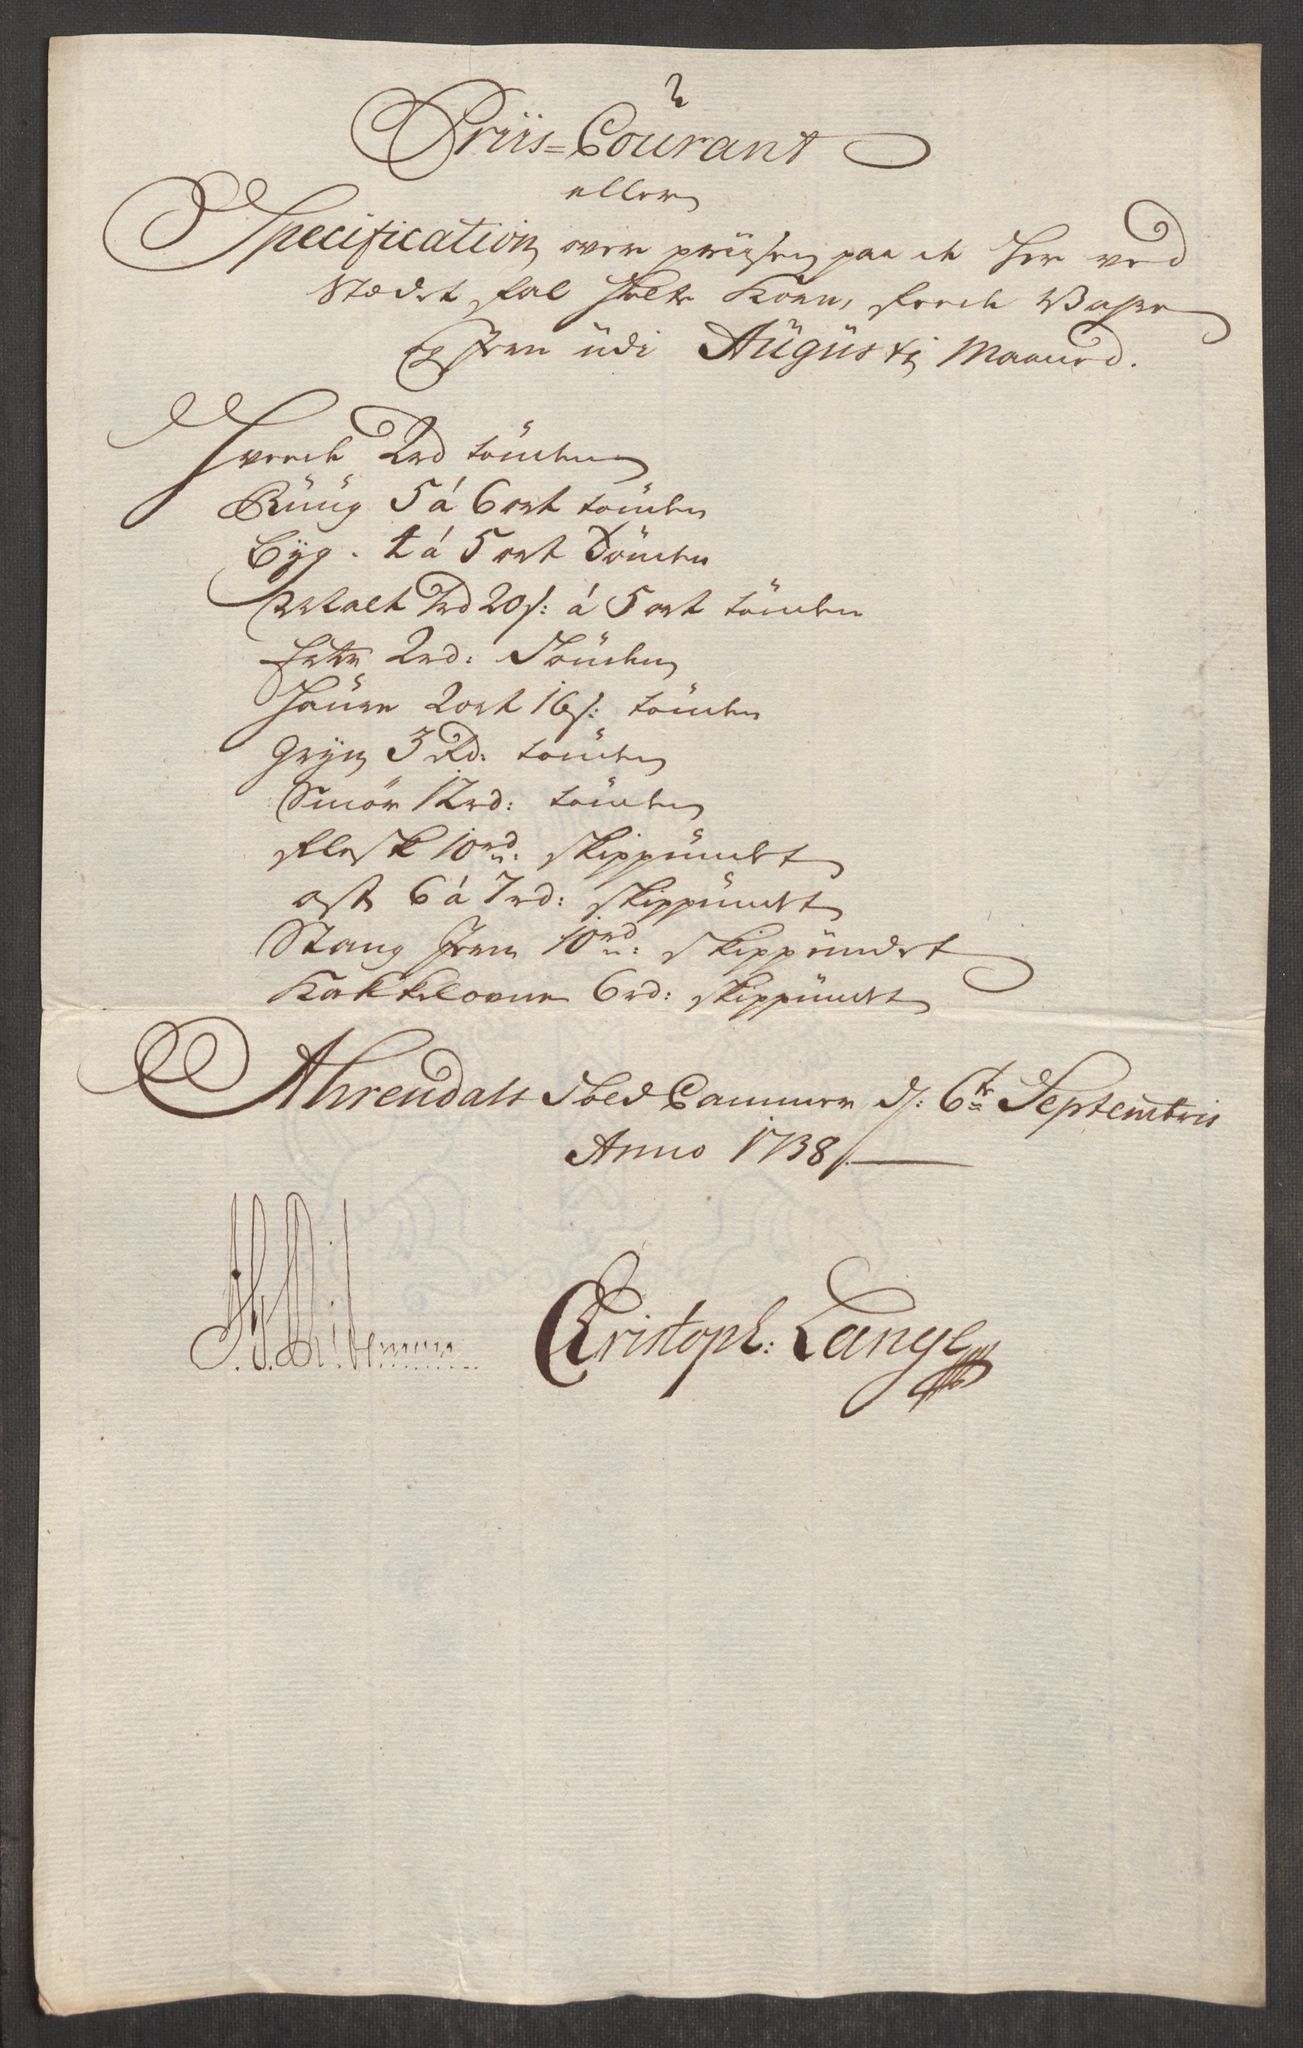 Priis=Courant
eller
Specification over priisen paa de her ved
Stædet fal holte Korn, ferde Vahre
og Jern udi Augustj Maaned.
Hvede 2rd tönden
Rüüg 5 á 6 ort tönden
Byg . 4 á 5 ort Tönden
Malt 1rd 20s: á 5 ort tönden
Erter 2rd: Tönden
Haure 2ort 16s: tönden
Gryn 3 Rd: tönden
Smör 12rd: tönden
flesk 10rd: skippundet
ost 6 á 7rd: skippundet
Stang Jern 10rd: skippundet
Kakkelovne 6rd: skippundet
Ahrendals Told Cammer, d: 6te Septembris
Anno 1738
Christoph: Lange